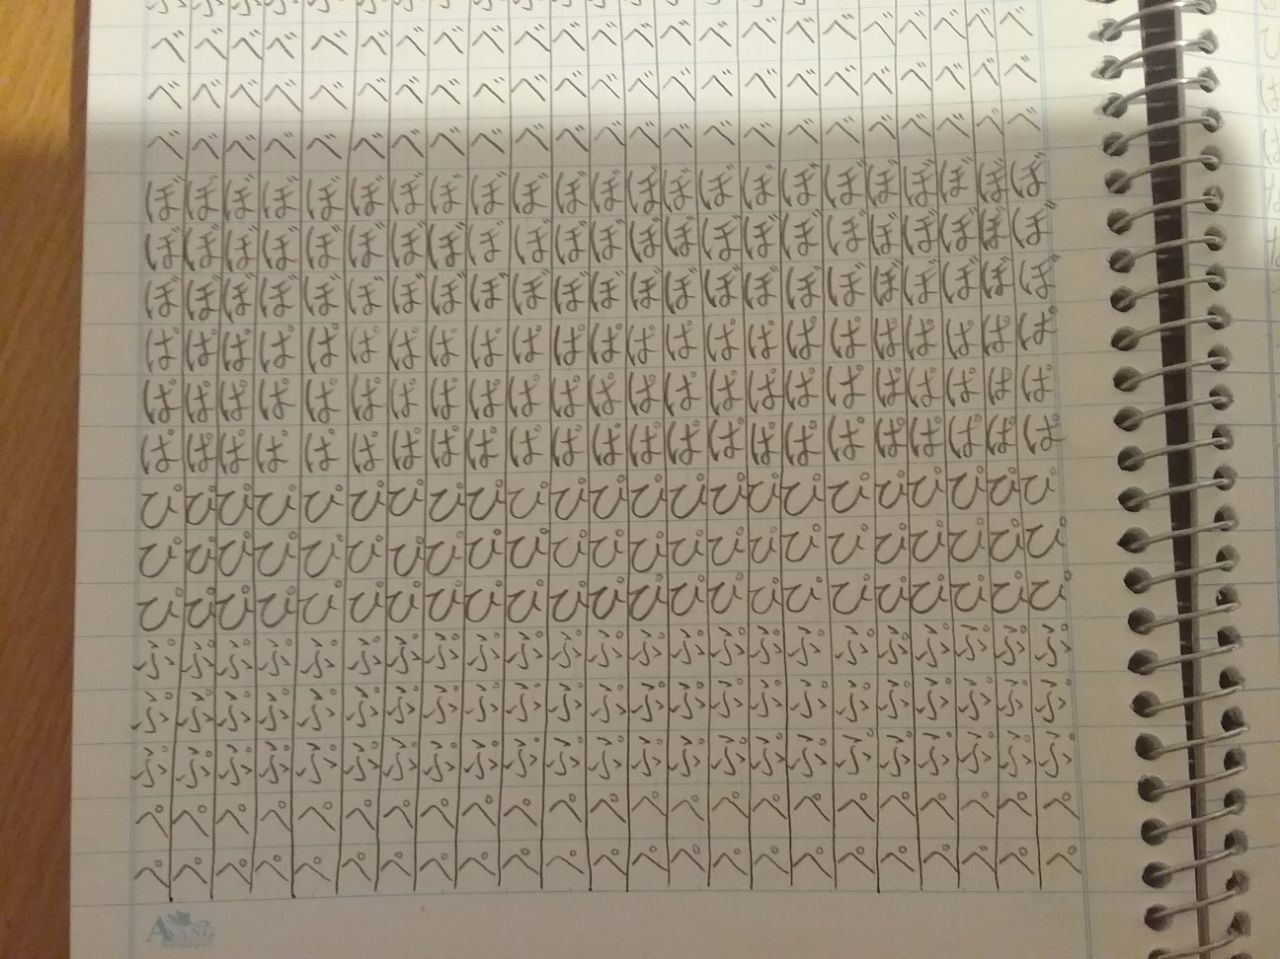 べべべべべべべべべべべべべべべべべべべべべべべ
べべべべべべべべべべべべべべべべべべべべべべべ
べべべべべべべべべべべべべべべべべべべべべべべ
ぼぼぼぼぼぼぼぼぼぼぼぼぼぼぼぼぼぼぼぼぼぼぼ
ぼぼぼぼぼぼぼぼぼぼぼぼぼぼぼぼぼぼぼぼぼぼぼ
ぼぼぼぼぼぼぼぼぼぼぼぼぼぼぼぼぼぼぼぼぼぼぼ
ぱぱぱぱぱぱぱぱぱぱぱぱぱぱぱぱぱぱぱぱぱぱぱ
ぱぱぱぱぱぱぱぱぱぱぱぱぱぱぱぱぱぱぱぱぱぱぱ
ぱぱぱぱぱぱぱぱぱぱぱぱぱぱぱぱぱぱぱぱぱぱぱ
ぴぴぴぴぴぴぴぴぴぴぴぴぴぴぴぴぴぴぴぴぴぴぴ
ぴぴぴぴぴぴぴぴぴぴぴぴぴぴぴぴぴぴぴぴぴぴぴ
ぴぴぴぴぴぴぴぴぴぴぴぴぴぴぴぴぴぴぴぴぴぴぴ
ぷぷぷぷぷぷぷぷぷぷぷぷぷぷぷぷぷぷぷぷぷぷぷ
ぷぷぷぷぷぷぷぷぷぷぷぷぷぷぷぷぷぷぷぷぷぷぷ
ぷぷぷぷぷぷぷぷぷぷぷぷぷぷぷぷぷぷぷぷぷぷぷ
ぺぺぺぺぺぺぺぺぺぺぺぺぺぺぺぺぺぺぺぺぺぺぺ
ぺぺぺぺぺぺぺぺぺぺぺぺぺぺぺぺぺぺぺぺぺぺぺ